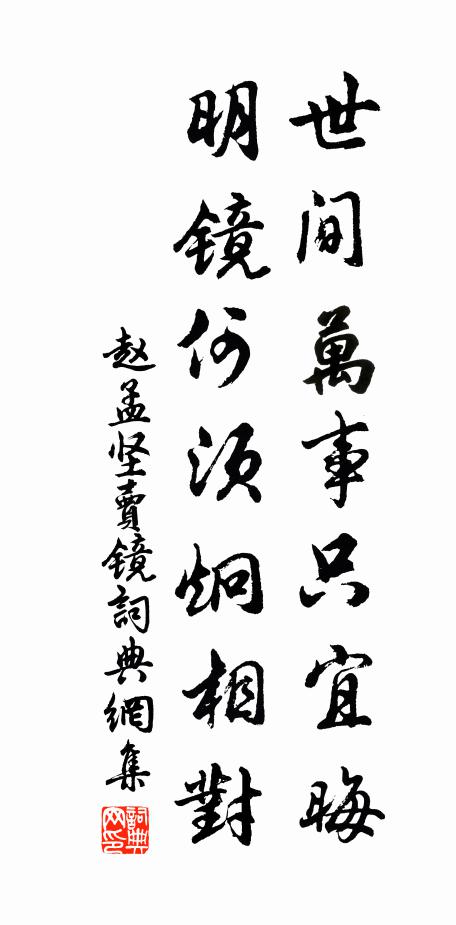 世间萬事只宜晦
明镜何须炯相對
赵孟坚賣镜詞典網集
詞典网印